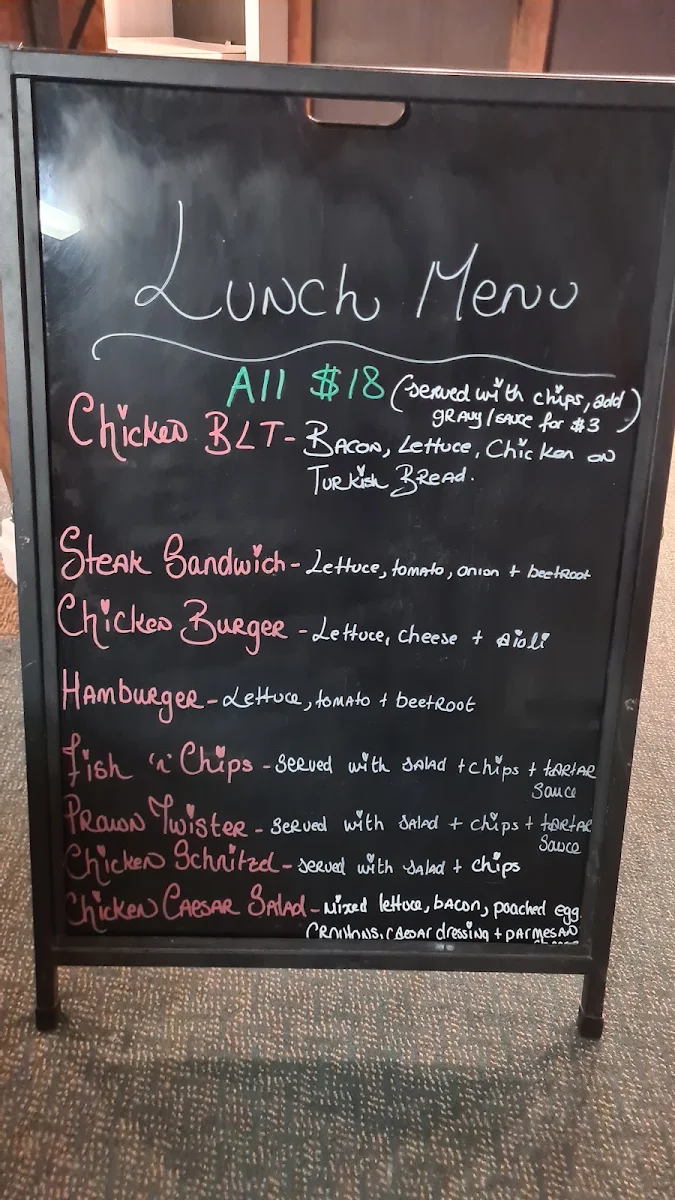 Lunch Menu
All $18 (served with chips, add
gravy/sauce for $3)
Chicken BLT - Bacon, Lettuce, Chicken on
Turkish Bread.
Steak Sandwich - Lettuce, tomato, onion + beetroot
Chicken Burger - Lettuce, cheese + aioli
Hamburger - Lettuce, tomato + beetroot
Fish 'n' Chips - served with salad + chips + tartar
sauce
Prawn Twister - served with salad + chips + tartar
sauce
Chicken Schnitzel - served with salad + chips
Chicken Caesar Salad - Mixed lettuce, bacon, poached egg.
croutons, caesar dressing + parmesan